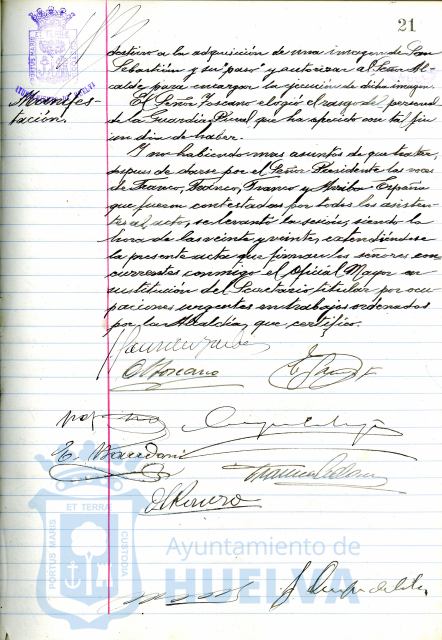 21
destino a la adquisición de una imagen de San
Sebastián y su "paso" y autorizar al Señor Al-
calde para encargar la ejecución de dicha imagen.
Manifes-
tación.
El Señor Toscano elogió el rasgo del personal
de la Guardia Rural que ha ofrecido con tal fin
un día de haber.
Y no habiendo mas asuntos de que tratar,
despues de darse por el Señor Presidente las voces
de Franco, Franco, Franco y Arriba España
que fueron contestadas por todos los asisten-
tes al acto, se levantó la sesión, siendo la
hora de las veinte y veinte, extendiéndose
la presente acta que firman los señores con-
currentes conmigo el Oficial Mayor en
sustitución del Secretario titular por ocu-
paciones urgentes en trabajos ordenados
por la Alcaldía, que certifico.
Toscano
PORTUS MARIS ET TERRAE CUSTODIA
Ayuntamiento de
HUELVA